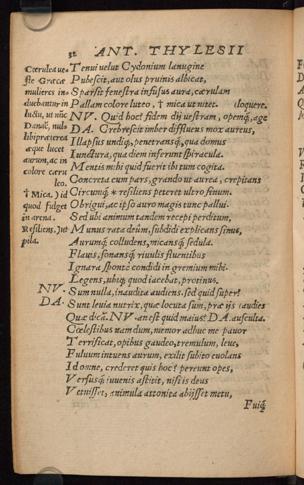 32 ANT. THYLESII
Cærulea ve-
ste Græcæ
mulieres in-
ducebantur in
luctu, ut nūc
Danaë, nul-
la libpræterea
æque lucet
aurum, ac in
colore cæru
leo.
† Mica.) id
quod fulget
in arena.
Resiliens,) ut
pila.
Tenui velut Cydonium lanugine
Pubescit, aut olus pruinis albicat,
Sparsit fenestra infusus aura, cærulam
Pallam colore luteo, † mica ut nitet. eloquere.
NV. Quid hoc? fidem dij vestram, opemq́, age
DA. Crebrescit imber diffluens mox aureus,
Illapsus undiq́, penetransq́, qua domus
Iunctura, qua diem inferunt spiracula.
Mentis mihi quid fuerit ibi tum cogita.
Concreta cum pars, grando ut aurea, crepitans
Circumq́ * resiliens peteret ultro sinum.
Obrigui, ac ipso auro magis tunc pallui.
Sed ubi animum tandem recepi perditum,
Munus rata deûm, subdidi explicans sinus,
Aurumq́ colludens, micansq́ sedula.
Flavis, sonansq́ rivulis fluentibus
Ignara sponte condidi in gremium mihi.
Legens, ubiq́ quod iacebat, protinus.
NV. Sum nulla, inaudita audiens. sed quid super?
DA. Sunt levia nutrix, quæ locuta sum, præ ijs audies
Quæ dicā. NV. an est quid maius? DA. ausculta.
Cœlestibus nam dum, memor adhuc me pavor
Terrificat, opibus gaudeo, tremulum, leve,
Fulvum intuens aurum, exilit subito evolans
Id omne, crederet quis hoc? pereunt opes,
Versusq́ iuvenis astitit, nisi is deus
Vetuisset, animula attonita abijsset metu,
Fuiq́